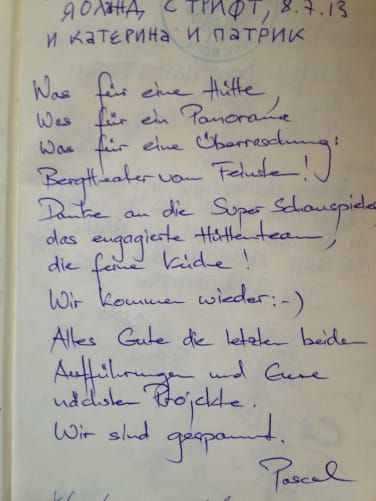 ЯОЛАНД С ТРИФТ, 8.7.13
И КАТЕРИНА И ПАТРИК
Was für eine Hütte,
Was für ein Panorama
Was für eine Überraschung:
Bergtheater vom Feinsten!
Danke an die Super Schauspieler
das engagierte Hüttenteam,
die feine Küche!
Wir kommen wieder :-)
Alles Gute die letzten beiden
Aufführungen und Eure
nächsten Projekte.
Wir sind gespannt.
Pascal